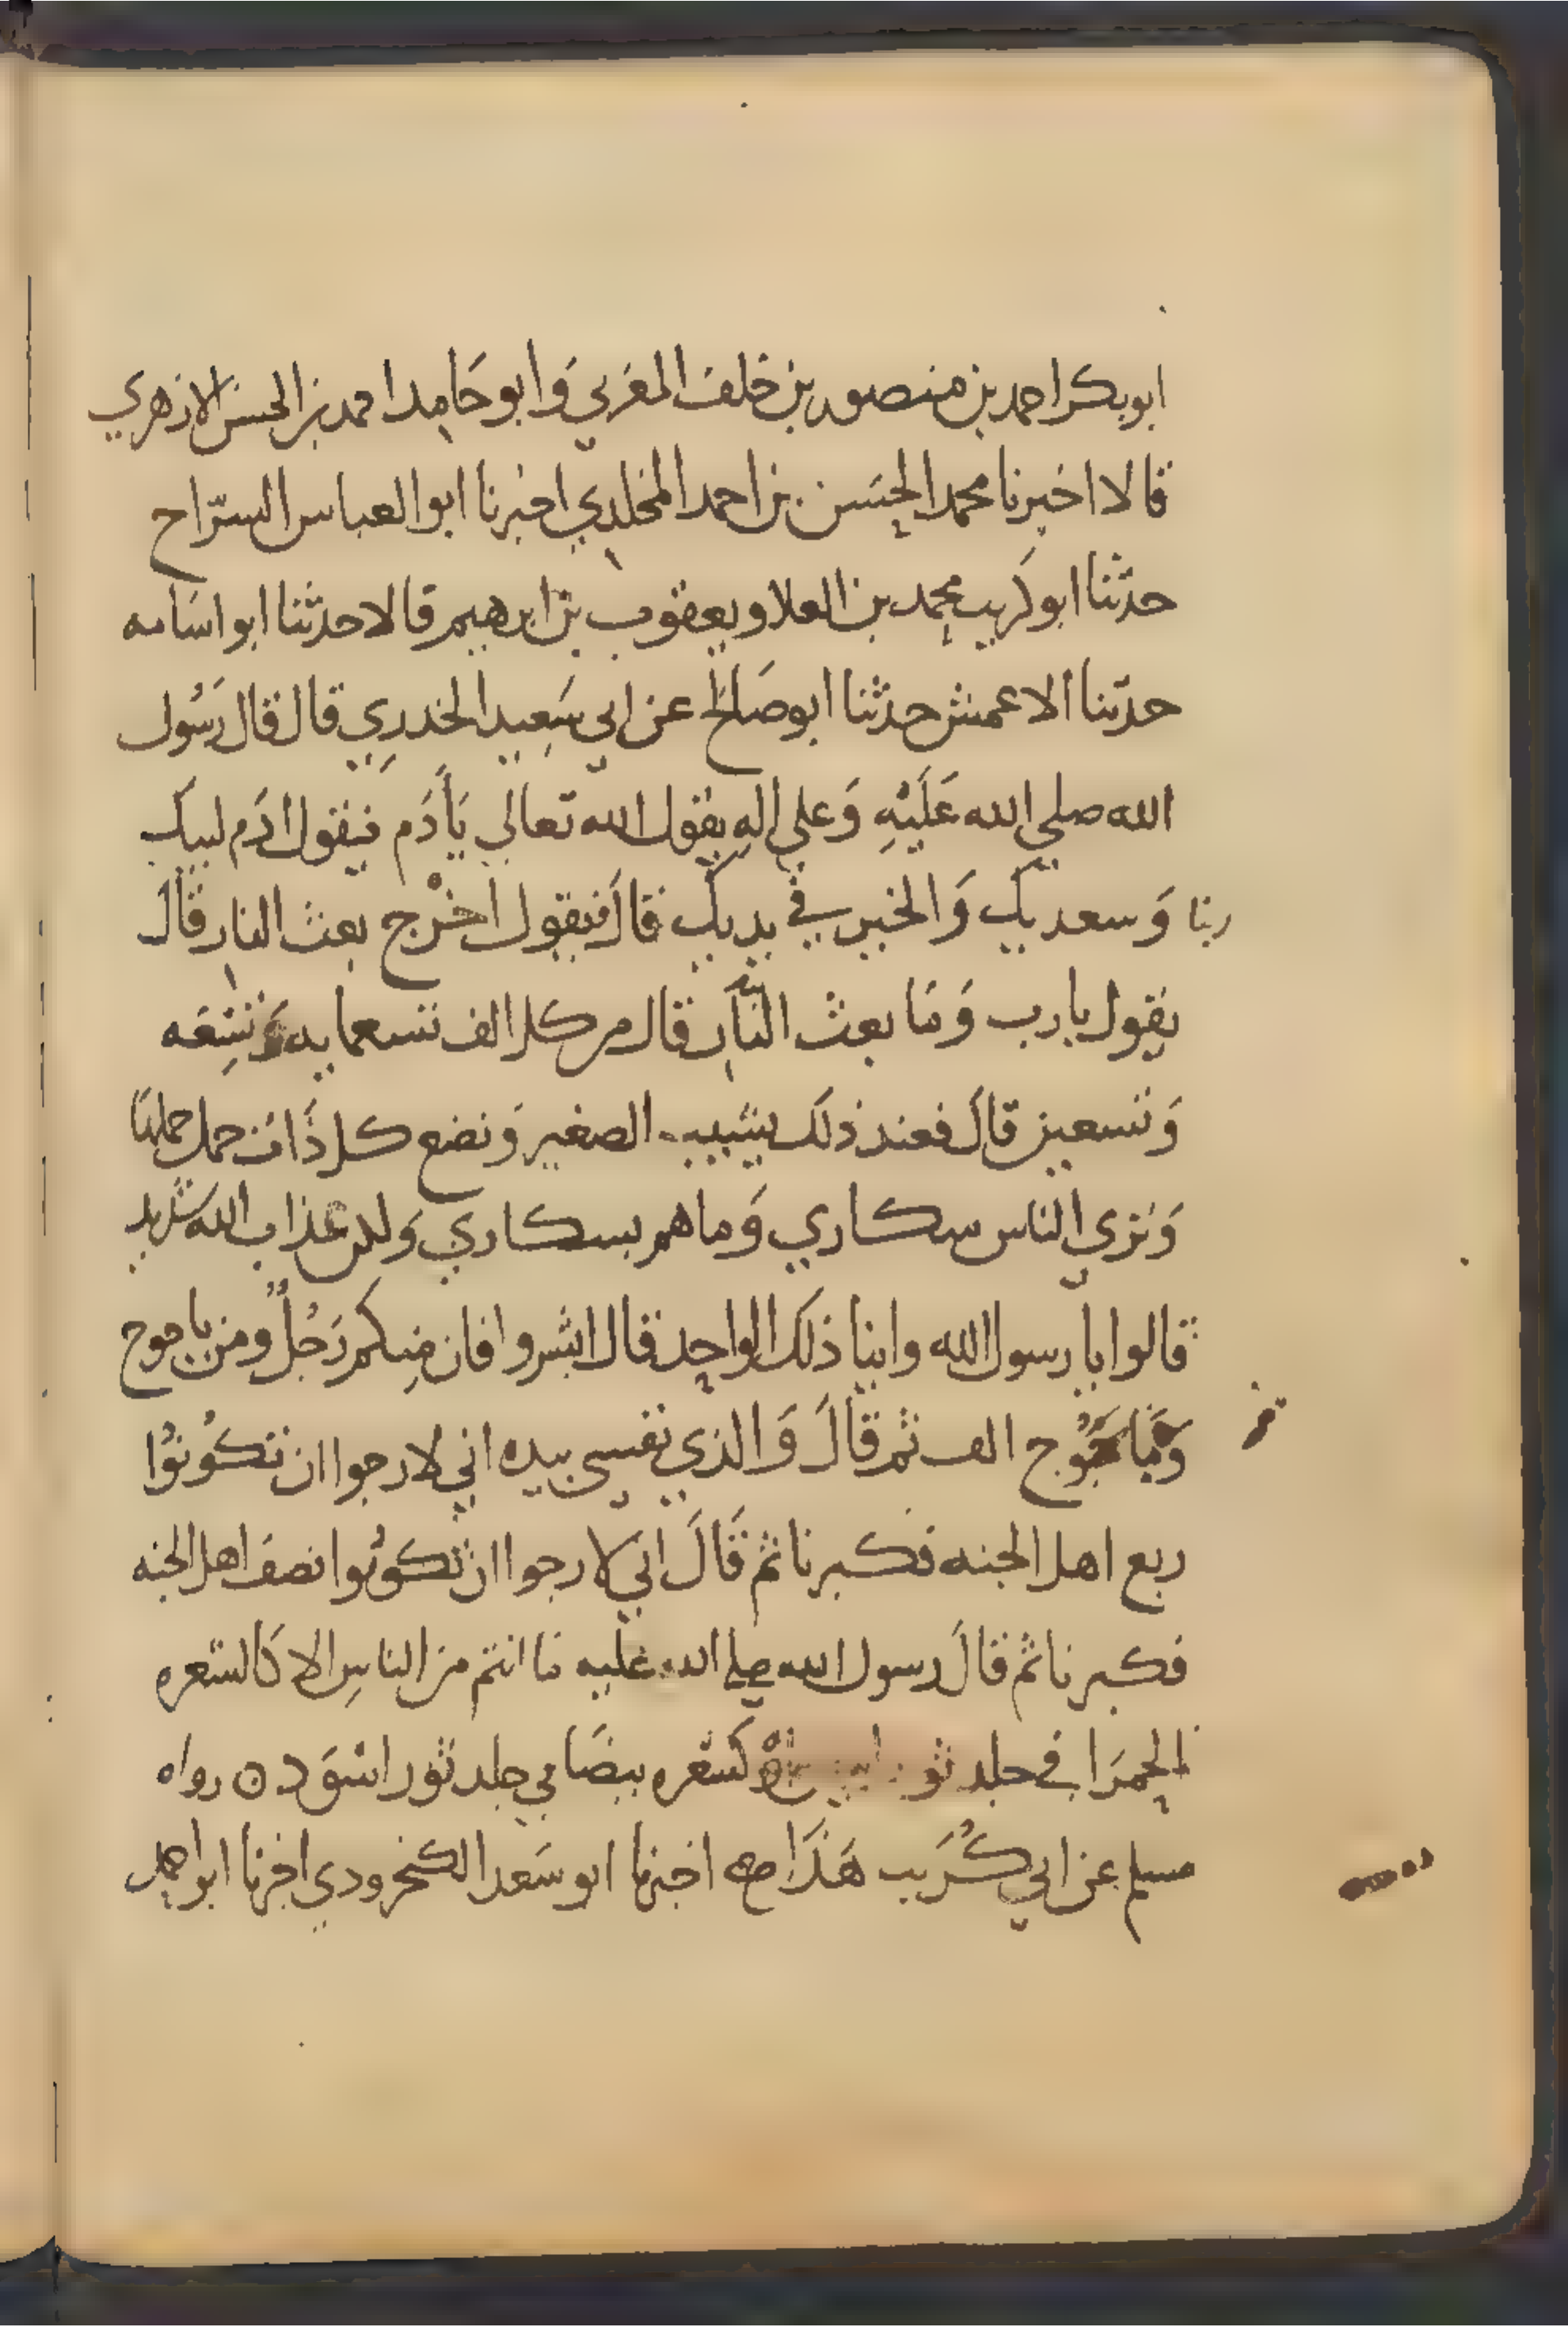 ابو بكر احمد بن منصور بن خلف المغربي وَابو حَامِد احمد بن الحسن الازهري
قالا اخبرنا محمد الحِسَن بن احمد المخلدِي اخبرنا ابو العباس السرّاح
حدثنا ابو كريب محمد بن العلا ويعقوب بن ابرهيم قالا حدثنا ابو اسَامه
حدثنا الاعمش حدثنا ابو صَالح عن ابي سَعِيد الخدرِي قال قال رَسُول
الله صلي الله عَلَيْهِ وَعلي الهِ يقول الله تعالي يَاأدَم فيقول ادَم لبيك
ربنا وَسعديك وَالخير في يديك قالَ فيقول اخْرج بعث النار قال
يقول يا رب وَمَا بعث النَّار قال من كل الف تسعمايه وَتسِعَه
وَتسعين قالَ فعند ذلك يشيب الصغير وَتضع كل ذَات حمل حملهَا
وَترَي الناس سكاري وَما هم بسكاري وَلكن عذاب الله شديد
قالوا يا رسول الله واينا ذلك الواحِد قال ابشروا فان مِنكم رَجُلٌ ومن ياجوج
وَمَاجُوج الف ثم قالَ وَالذي نفسِي بيده اني لارجوا ان تكوُنُوا
ربع اهل الجنه فكبرنا ثم قَالَ اني لارجوا ان تكونُوا نصف اهل الجنه
فكبرنا ثم قالَ رسول الله صلي الله عليه مَا انتم من الناسِ الا كَالشعره
الحِمرَا في جلد ثور كَشعره بيضَا في جلد ثور اسْوَد ○ رواه
مسلم عن ابي كُرَيب هَذَا صح اخبرنا ابو سَعد الكنجرودي اخبرنا ابو احمد